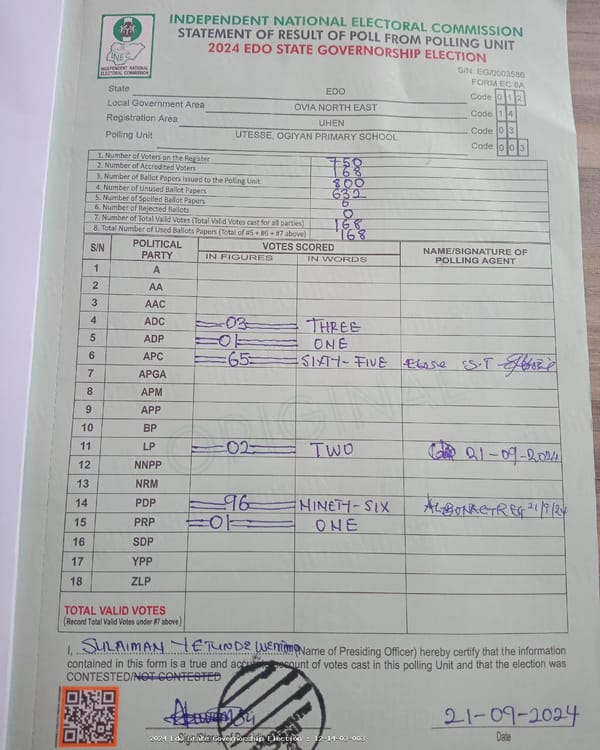 INDEPENDENT NATIONAL ELECTORAL COMMISSION
STATEMENT OF RESULT OF POLL FROM POLLING UNIT
2024 EDO STATE GOVERNORSHIP ELECTION
INEC
INDEPENDENT NATIONAL ELECTORAL COMMISSION
S/N: EG/0003586
FORM EC 8A
State EDO Code 0 1 2
Local Government Area OVIA NORTH EAST Code 1 4
Registration Area UHEN Code 0 3
Polling Unit UTESSE, OGIYAN PRIMARY SCHOOL Code 0 0 3
1. Number of Voters on the Register 750
2. Number of Accredited Voters 168
3. Number of Ballot Papers Issued to the Polling Unit 800
4. Number of Unused Ballot Papers 632
5. Number of Spoiled Ballot Papers 0
6. Number of Rejected Ballots 0
7. Number of Total Valid Votes (Total Valid Votes cast for all parties) 168
8. Total Number of Used Ballots Papers (Total of #5 + #6 + #7 above) 168
S/N POLITICAL PARTY VOTES SCORED NAME/SIGNATURE OF POLLING AGENT
IN FIGURES IN WORDS
1 A
2 AA
3 AAC
4 ADC 03 THREE
5 ADP 01 ONE
6 APC 65 SIXTY-FIVE S.T
7 APGA
8 APM
9 APP
10 BP
11 LP 02 TWO 21-09-2024
12 NNPP
13 NRM
14 PDP 96 NINETY-SIX 21/9/24
15 PRP 01 ONE
16 SDP
17 YPP
18 ZLP
ORIGINAL
TOTAL VALID VOTES
(Record Total Valid Votes under #7 above)
I, SULAIMAN YETUNDE (Name of Presiding Officer) hereby certify that the information
contained in this form is a true and accurate account of votes cast in this polling Unit and that the election was
CONTESTED/NOT CONTESTED
21-09-2024
Date
2024 Edo State Governorship Election - 12-14-03-003